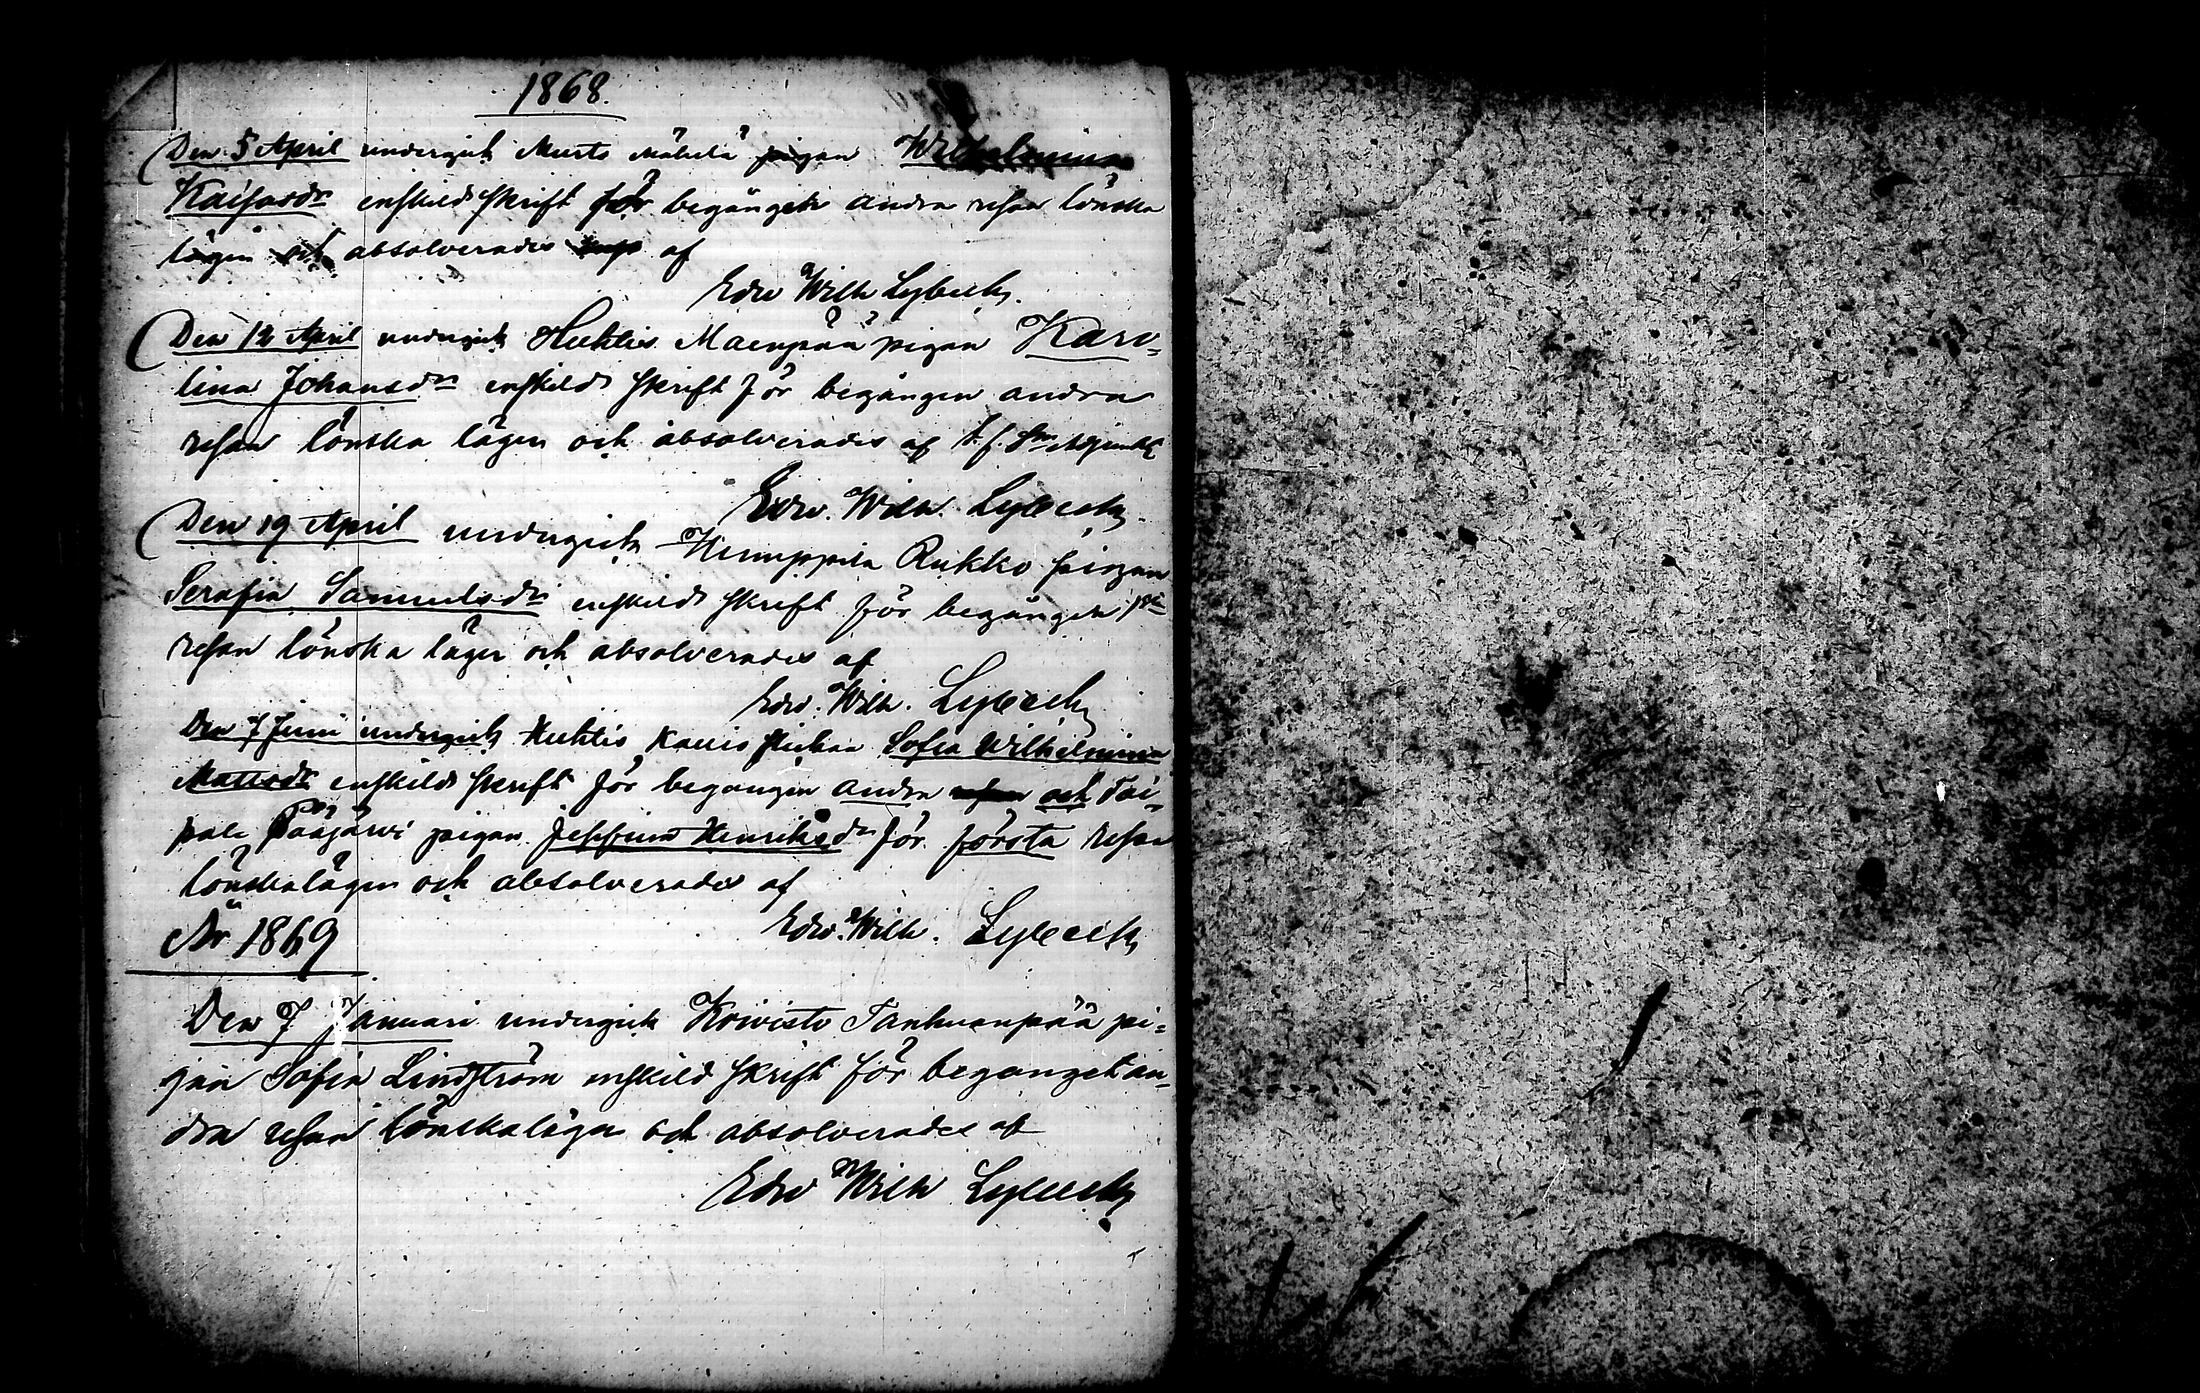 1868.
Den 5 April undergick Murto Mäkelä pigan Wilhelmina
Kaisasdr enskild skrift för begånget andra resan lönska
lägen och absolverades af
Edw Wilh Lybeck.
Den 12 April undergick Huhtis Maenpää pigan Karo-
lina Johansdr enskild skrift för begången andra
resan lönska lägen och absolverades af t.f. Sn Adjunkt
Edw. Wilh. Lybeck.
Den 19 April undergick Humppila Rukko pigan
Serafia Samuelsdr enskild skrift för begången 1sta
resan lönska läger och absolverades af
Edw. Wilh. Lybeck
Den 7 Juni undergick Huhtis Kauris flickan Sofia Wilhelmina
Mattsdr enskild skrift för begången andra resan och Tai-
pale Pääjärvi pigan Henriksdr för första resan
lönskalägen och absolverades af
Edw. Wilh. Lybeck
År 1869
Den 7 Januari undergick Koivisto Tanhuanpää pi-
gan Sofia Lindström enskild skrift för begånget an-
dra resan lönskaläger och absolverades af
Edw Wilh Lybeck